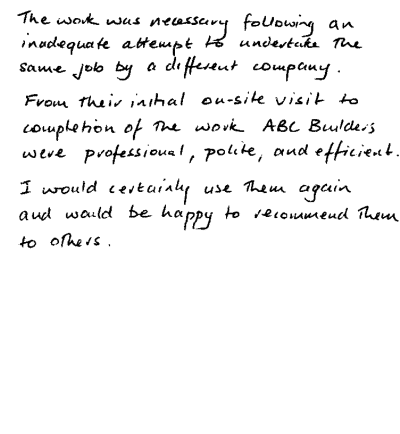 The work was necessary following an
inadequate attempt to undertake the
same job by a different company.
From their initial on-site visit to
completion of the work ABC Builders
were professional, polite, and efficient.
I would certainly use them again
and would be happy to recommend them
to others.